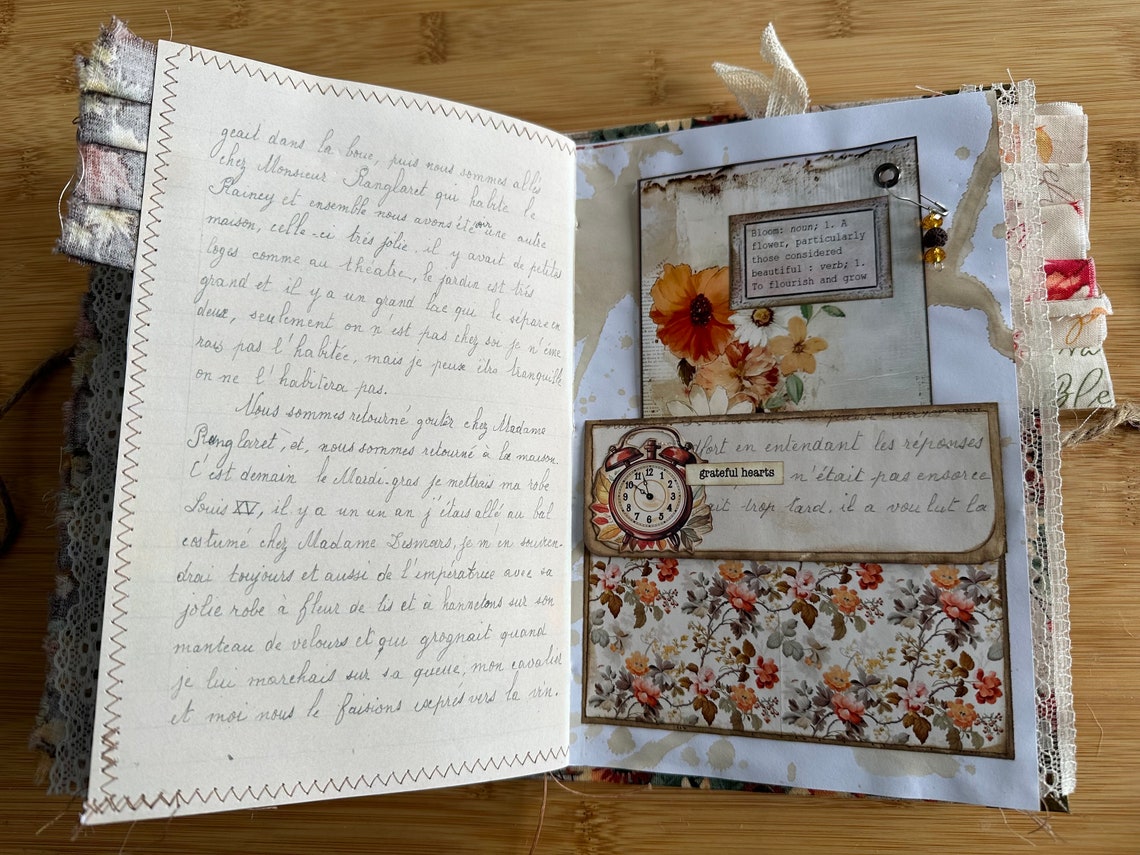 geait dans la boue, puis nous sommes allés
chez Monsieur Ranglaret qui habite le
Rainey et ensemble nous avons été voir une autre
maison, celle-ci très jolie il y avait de petites
loges comme au théatre, le jardin est très
grand et il y a un grand lac qui le sépare en
deux, seulement on n'est pas chez soi je n'ême
rais pas l'habitée, mais je peux être tranquille
on ne l'habitera pas.
Nous sommes retourné goûter chez Madame
Ranglaret, et, nous sommes retourné à la maison.
C'est demain le Mardi-gras je mettrais ma robe
Louis XV, il y a un un an j'étais allé au bal
costume chez Madame Lesmars, je m'en souvien-
drai toujours et aussi de l'impératrice avec sa
jolie robe à fleur de lis et à hannetons sur son
manteau de velours et qui grognait quand
je lui marchais sur sa queue, mon cavalier
et moi nous le faisions exprés vers la vin.
Bloom: noun; 1. A
flower, particularly
those considered
beautiful : verb; 1.
To flourish and grow
fort en entendant les réponses
grateful hearts n'était pas encore
ait trop tard, il a voulut la
12 1 2 3 4 5 6 7 8 9 10 11